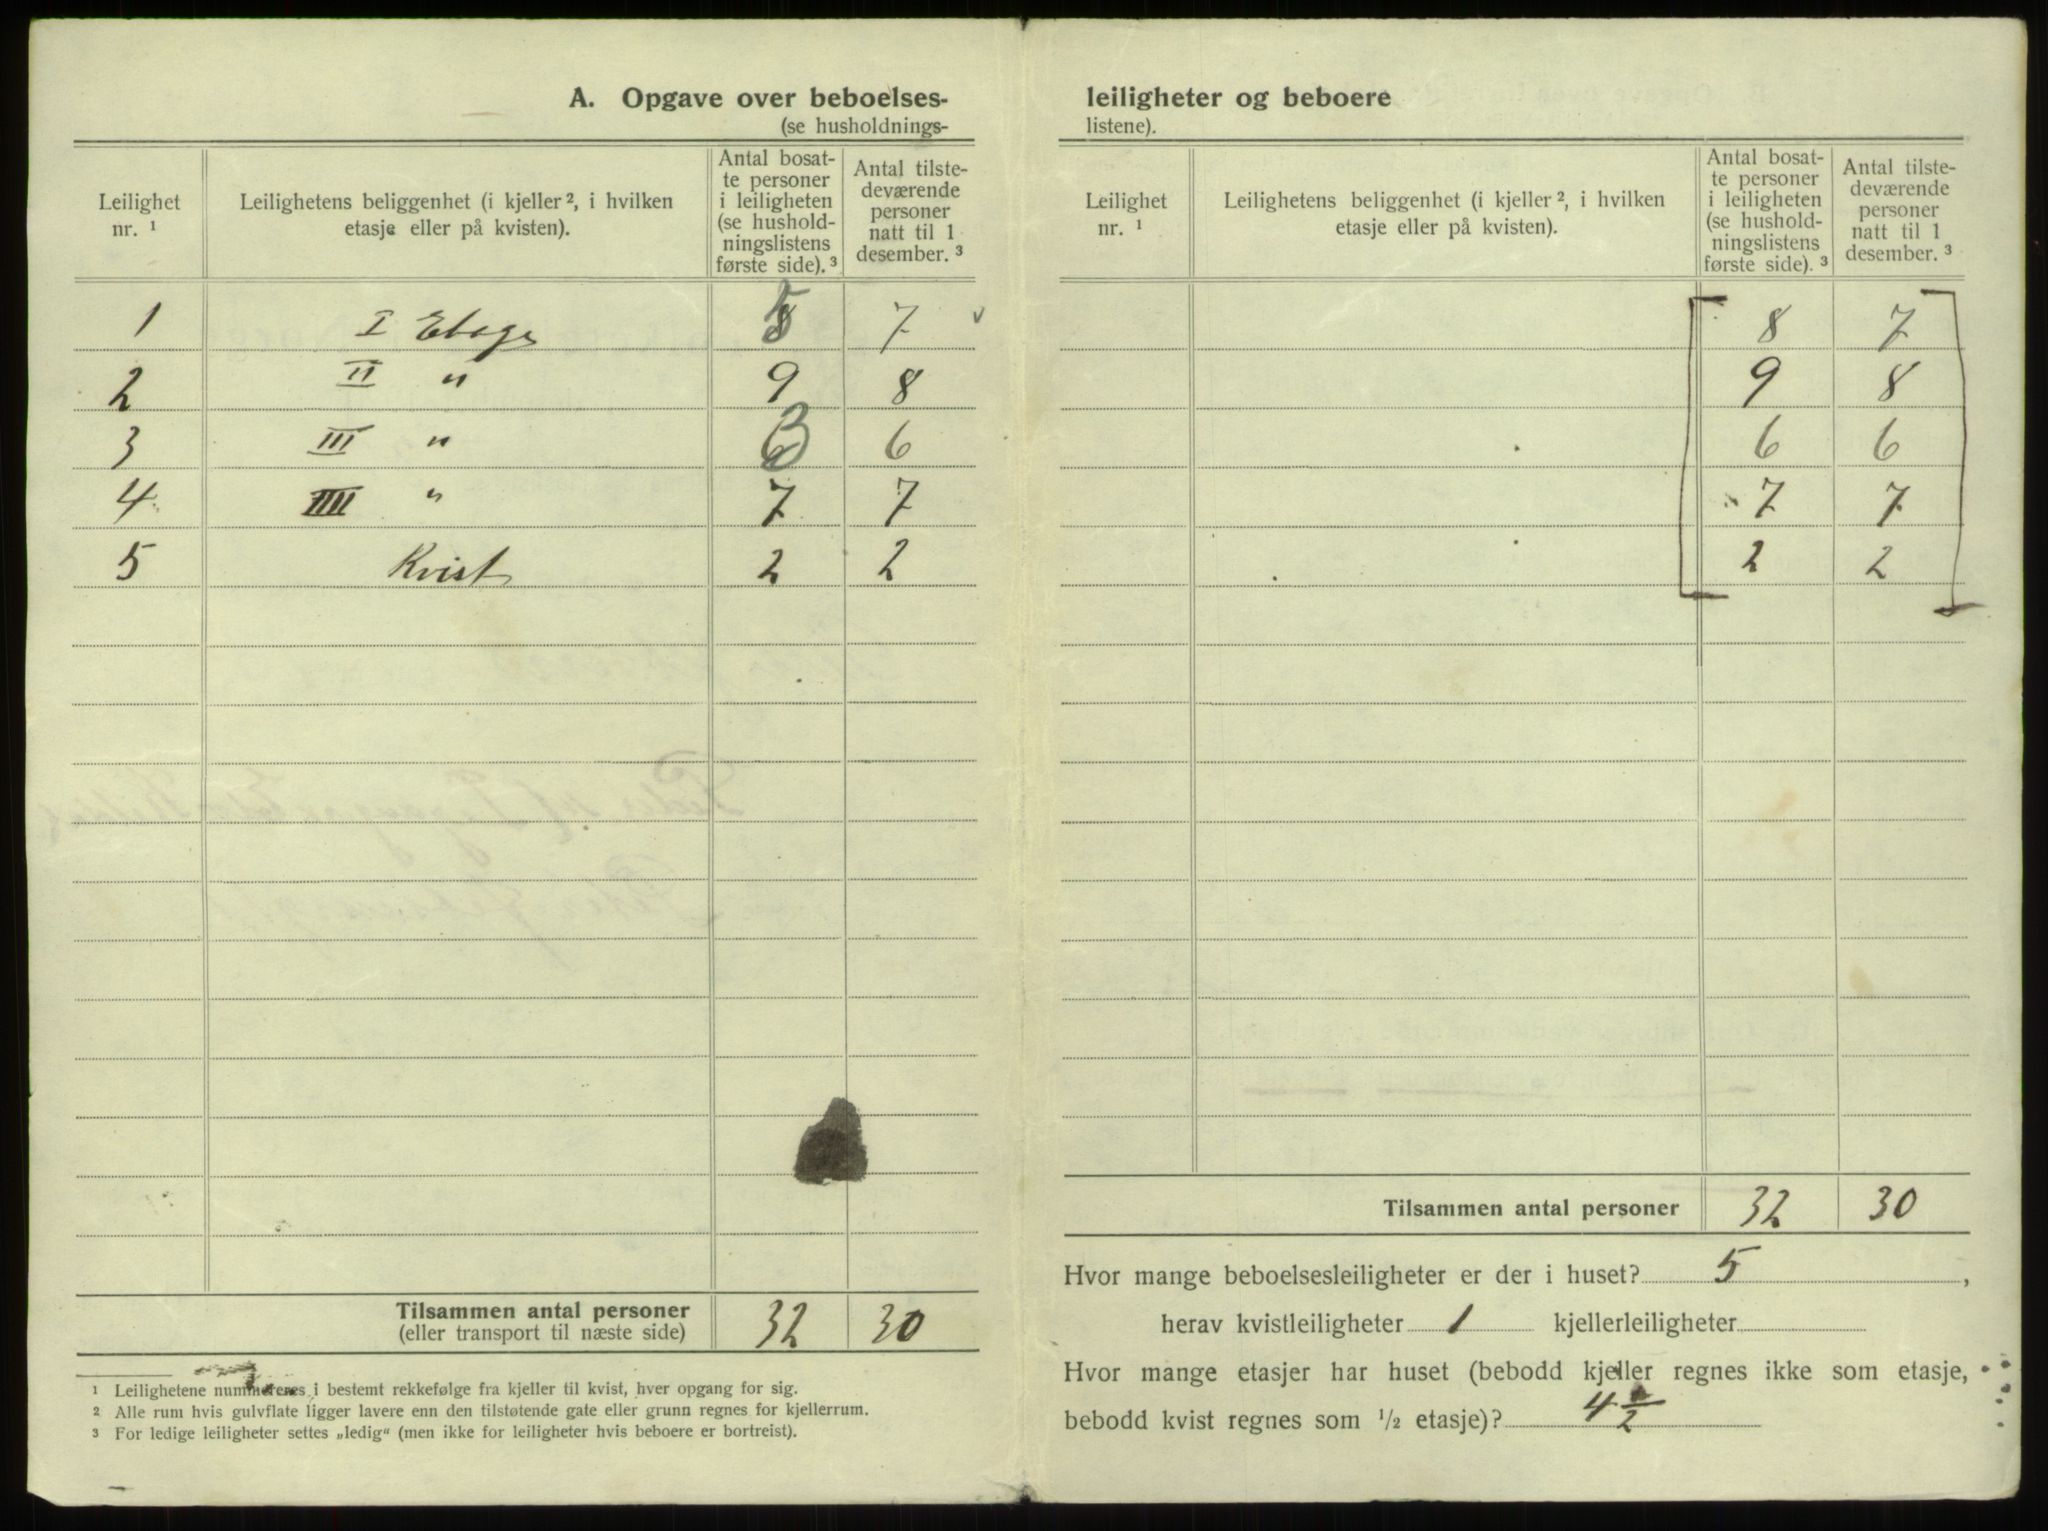 A. Opgave over beboelses-
(se husholdnings-
Leilighet nr. ¹
Leilighetens beliggenhet (i kjeller ², i hvilken etasje eller på kvisten).
Antal bosat-
te personer
i leiligheten
(se hushold-
ningslistens
første side). ³
Antal tilste-
deværende
personer
natt til 1
desember. ³
1 I Etage 8 7
2 II " 9 8
3 III " 6 6
4 IIII " 7 7
5 Kvist 2 2
Tilsammen antal personer 32 30
(eller transport til næste side)
¹ Leilighetene nummereres i bestemt rekkefølge fra kjeller til kvist, hver opgang for sig.
² Alle rum hvis gulvflate ligger lavere enn den tilstøtende gate eller grunn regnes for kjellerrum.
³ For ledige leiligheter settes „ledig“ (men ikke for leiligheter hvis beboere er bortreist).
leiligheter og beboere
listene).
Leilighet nr. ¹
Leilighetens beliggenhet (i kjeller ², i hvilken etasje eller på kvisten).
Antal bosat-
te personer
i leiligheten
(se hushold-
ningslistens
første side). ³
Antal tilste-
deværende
personer
natt til 1
desember. ³
8 7
9 8
6 6
7 7
2 2
Tilsammen antal personer 32 30
Hvor mange beboelsesleiligheter er der i huset? 5,
herav kvistleiligheter 1 kjellerleiligheter
Hvor mange etasjer har huset (bebodd kjeller regnes ikke som etasje,
bebodd kvist regnes som ½ etasje)? 4 ½